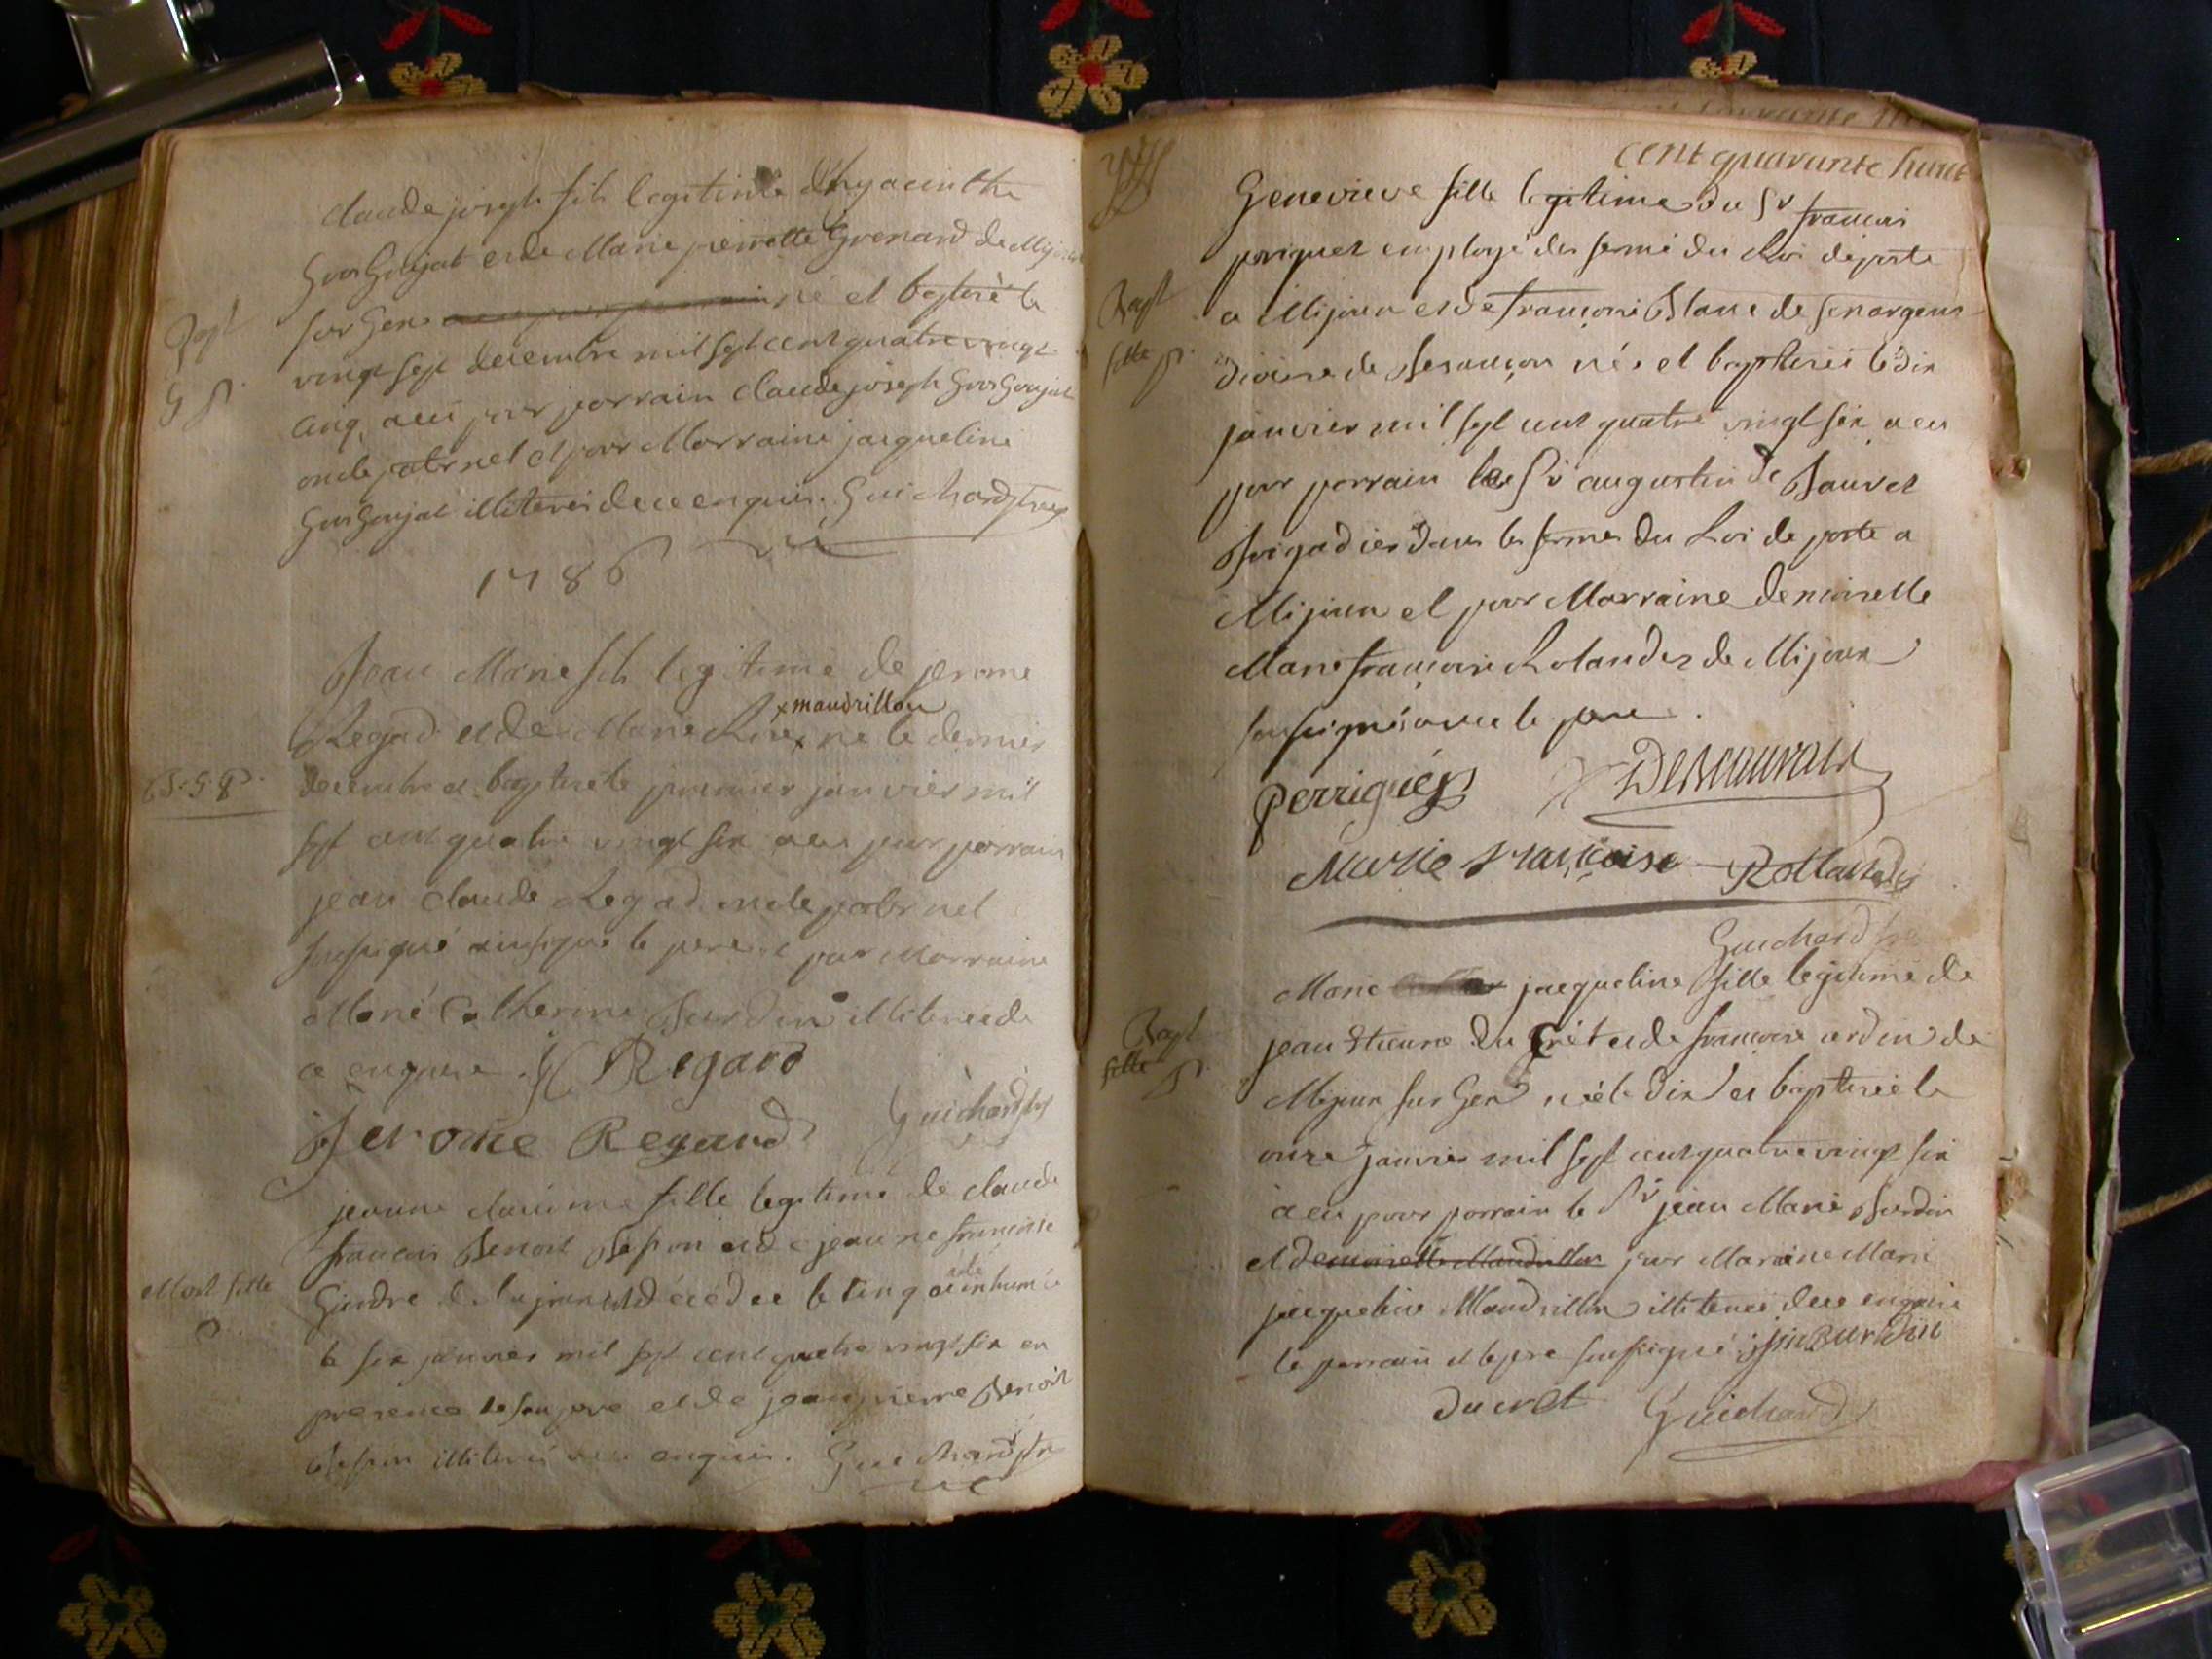 claude joseph fils legitime d'hyacinthe
Gros Gurjat et de Marie pierrette Grenard de Mijoux
Bapt
sur Gex né et baptisé le
vingt sept decembre mil sept cent quatre vingt
G p.
cinq, a eu pour parrain claude joseph Gros Gurjat
oncle paternel et pour Marraine jacqueline
Gros Gurjat illiterés de ce enquis. Guichard ptre
1786
Jean Marie fils legitime de jerome
x maudrillon
Regad et de Marie x né le dernier
B. G. P.
decembre et baptisé le premier janvier mil
sept cent quatre vingt six a eu pour parrain
jean claude Regad oncle paternel
soussigné ainsi que le pere et pour Marraine
Marie Catherine Burdin illiteree de
ce enquise. JC Regard
Jerome Regard Guichard ptre
jeanne fille legitime de claude
francois Benoit et de jeanne francoise
été
Mort fille
Girdre de decédee le cinq a inhumée
P.
le six janvier mil sept cent quatre vingt six en
presence de son pere et de jean pierre Benoit
illiterés de ce enquis. Guichard ptre
cent quarante huit
Genevieve fille legitime du Sr francois
periquet employé des ferme du Roi de poste
Bapt
a Mijoux et de francoise Blanc de
fille p.
diocese de Besançon née et baptisée le dix
janvier mil sept cent quatre vingt six a eu
pour parrain le Sr augustin de Bauvet
Brigadier dans les fermes du Roi de poste a
Mijoux et pour Marraine demoiselle
Marie francoise Rolandez de Mijoux
soussignés avec le pere.
perriguey
Marie Françoise Rollandez
Guichard ptre
Marie jacqueline fille legitime de
Bapt
jean Etienne du Crêt et de francoise ardin de
fille p.
Mijoux sur Gex née le dix et baptisée le
onze janvier mil sept cent quatre vingt six
a eu pour parrain le Sr jean Marie Burdin
et demoiselle Maudrillon pour Maraine Marie
jacqueline Maudrillon illiteree de ce enquise
le parrain et le pere soussigné: jm Burdin
ducret Guichard